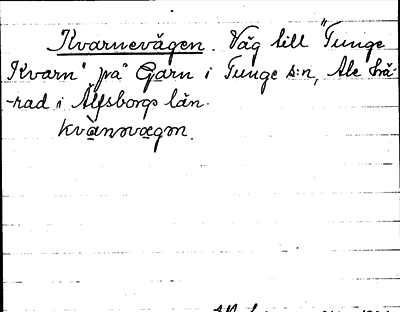 Kvarnevägen. Väg till "Tunge
Kvarn" på Garn i Tunge s:n, Ale hä-
-rad i Älfsborgs län.
kvannvægən.